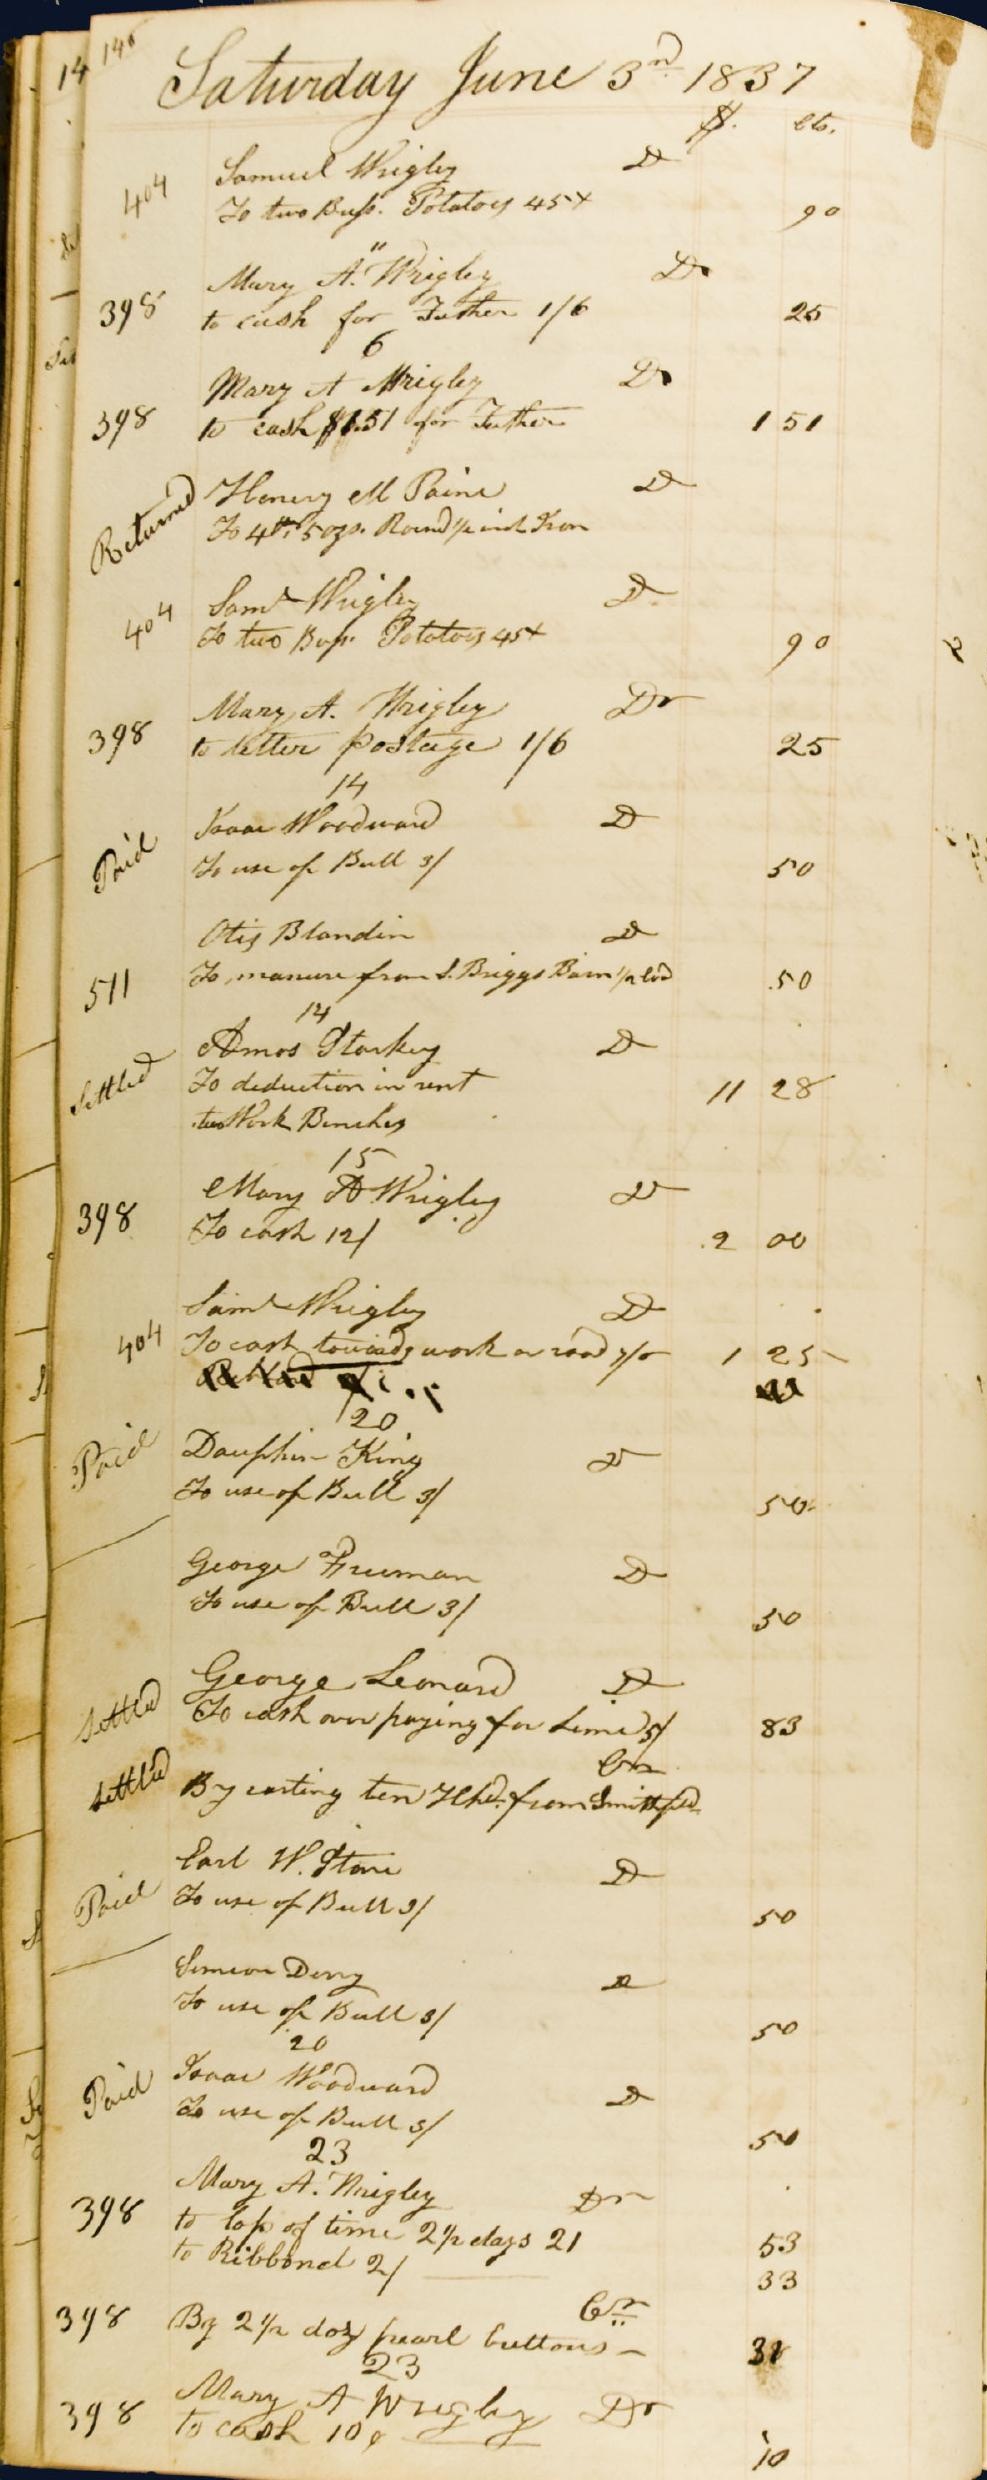 146
Saturday June 3rd 1837
$. cts.
404 Samuel Wrigley D
To two Bus. Potatoes 45+ 90
"
398 Mary A. Wrigley Dr
to cash for Father 1/6 25
6
Mary A Wrigley Dr
398 to cash $1.51 for Father 1 51
Returned Henery M Paine D
To 4 lbs 5 ozs. Round 1/2 inch Iron
404 Saml Wrigley D
To two Bus. Potatoes 45+ 90
Mary A. Wrigley Dr
398 to letter postage 1/6 25
14
Paid Isaac Woodward D
To use of Bull 3/ 50
Otis Blandin D
511 To manure from S. Briggs Barn 1/2 lod 50
14
Settled Amos Starkey D
To deduction in rent 11 28
two Work Benches
15
398 Mary A Wrigley D
To cash 12/ 2 00
Saml Wrigley D
404 To cash towards work on road 7/6 1 25
20
Paid Dauphin King D
To use of Bull 3/ 50
George Freeman D
To use of Bull 3/ 50
George Leonard D
Settled To cash over paying for Lime 5/ 83
Cr
Settled By carting ten Hhd. from Smithfield
Earl W. Stone D
Paid To use of Bull 3/ 50
Simeon Dery D
To use of Bull 3/ 50
20
Paid Isaac Woodward D
To use of Bull 3/ 50
23
Mary A. Wrigley Dr
398 to loss of time 2 1/2 days 21 53
to Ribbond 2/ 33
Cr
398 By 2 1/2 doz pearl buttons 31
23
Mary A Wrigley Dr
398 to cash 10¢ 10